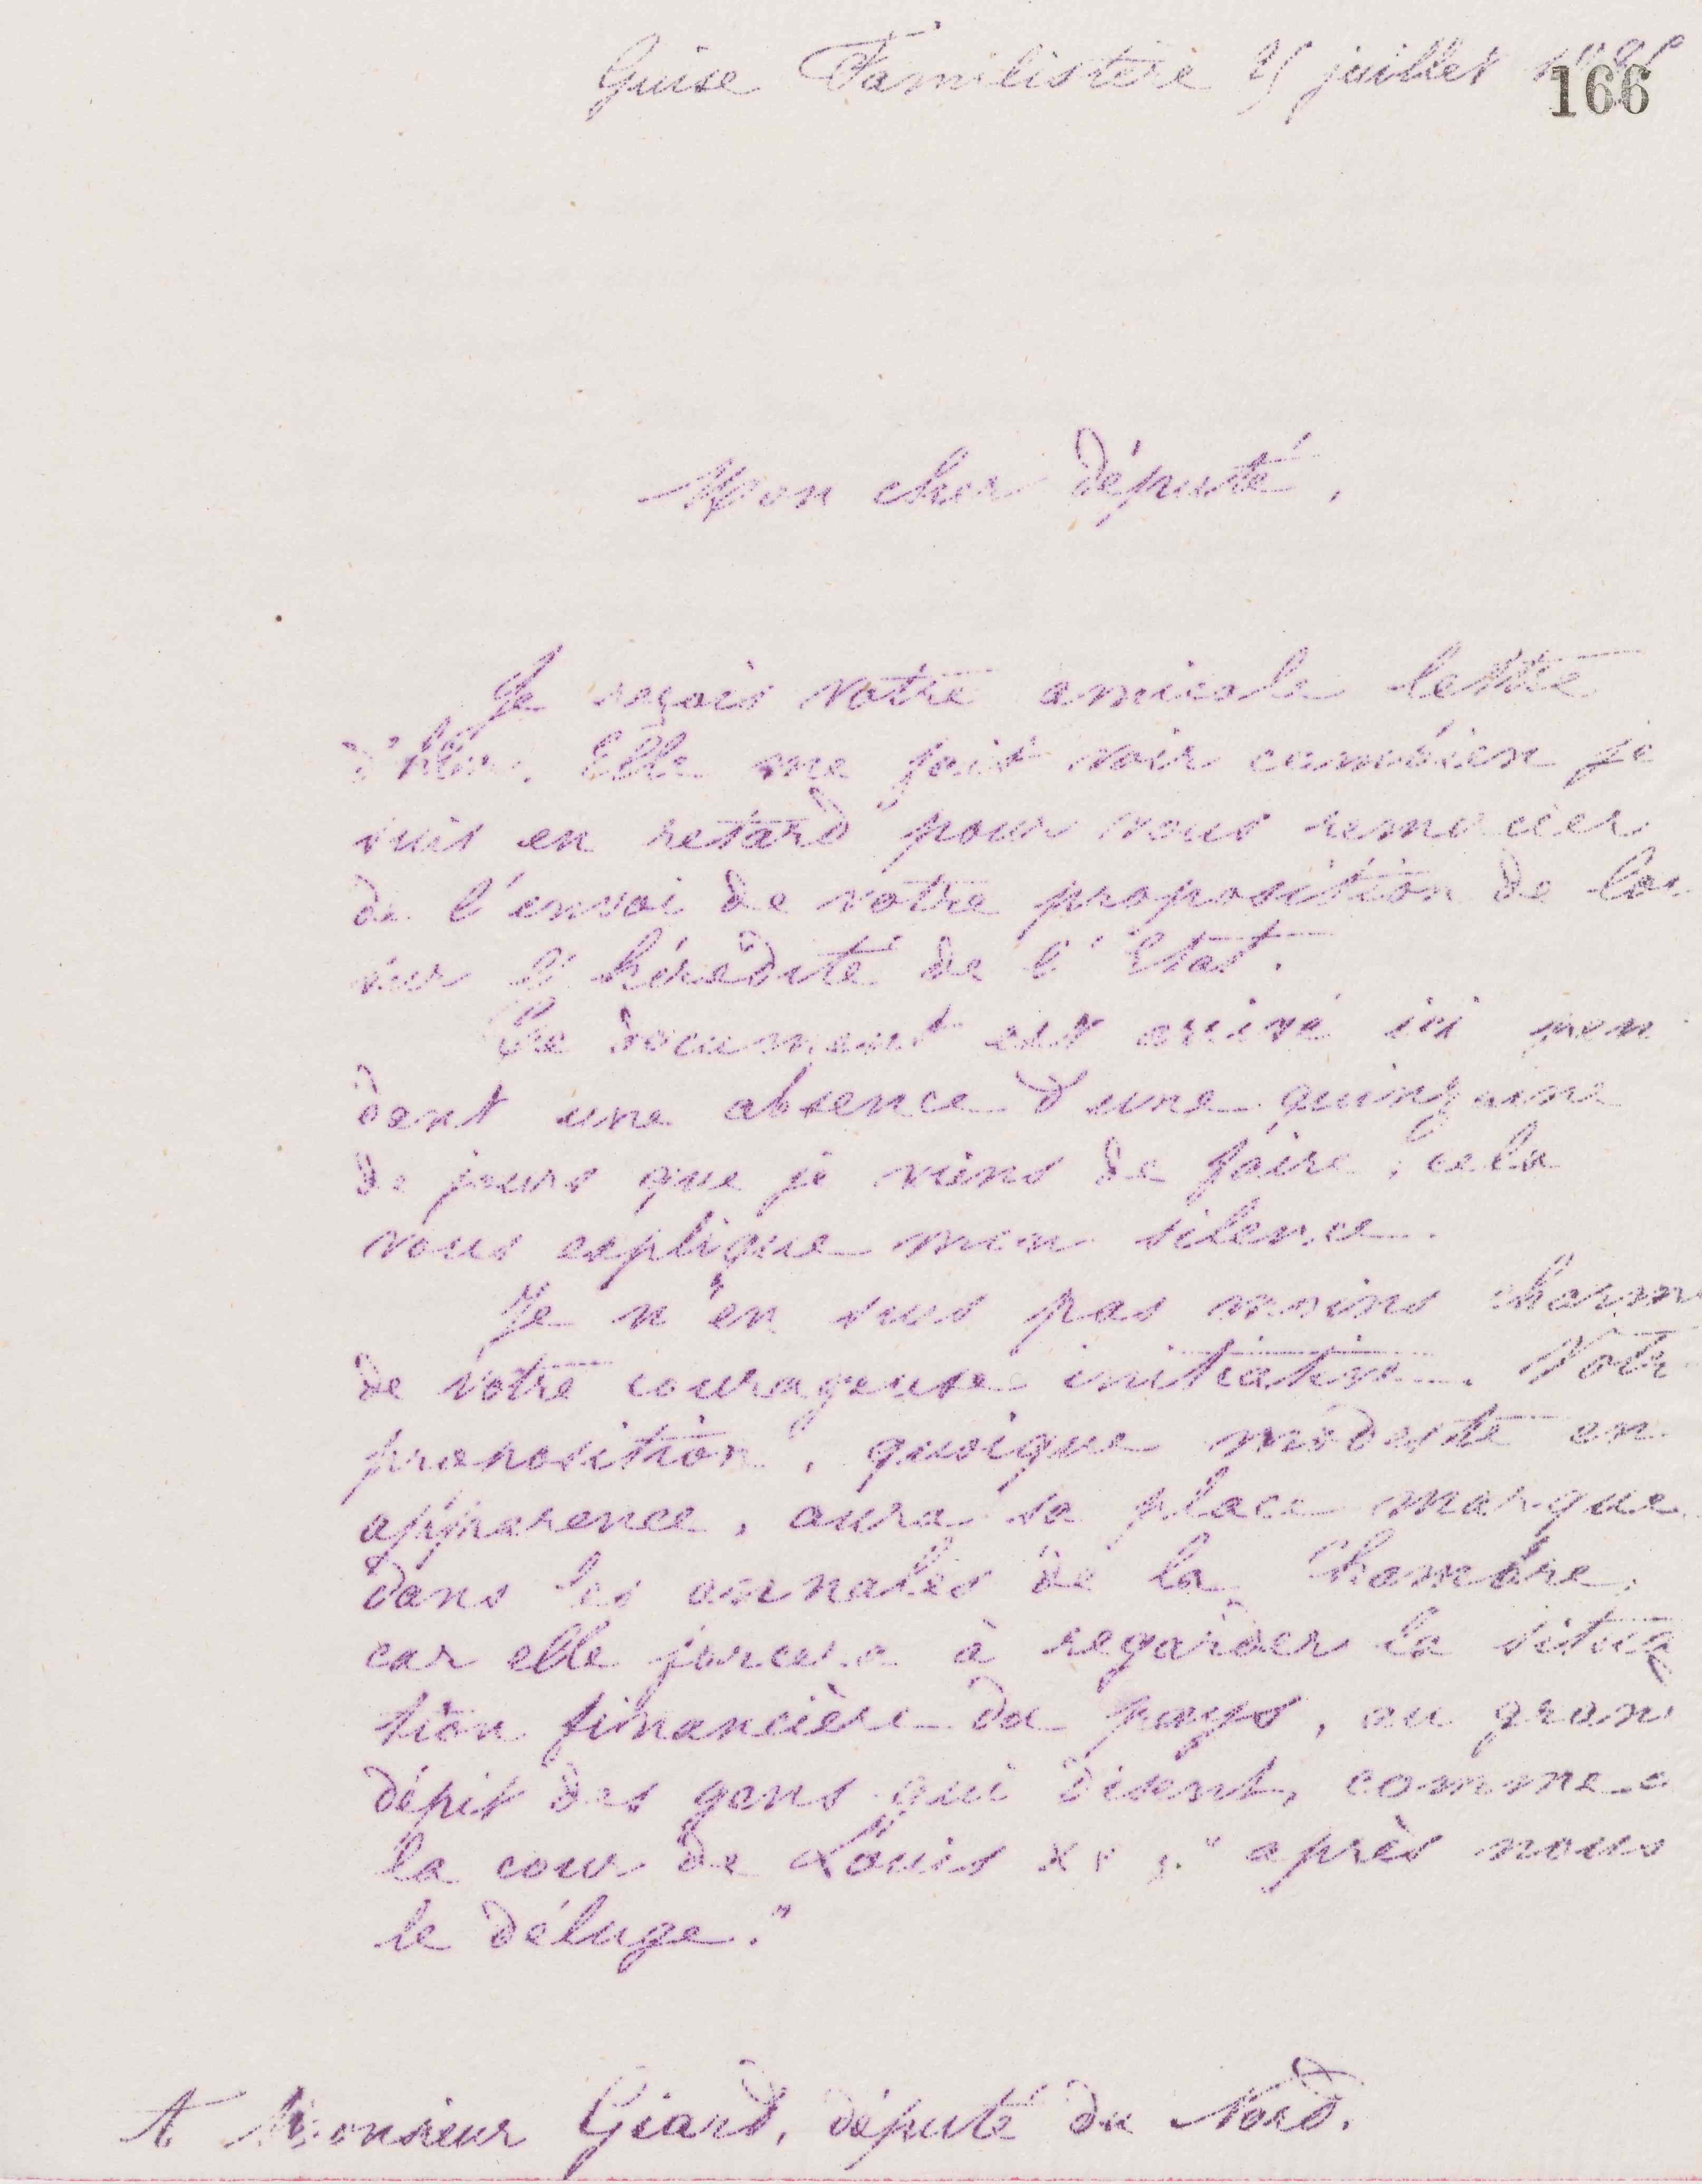 Guise Familistère juillet
166
Mon cher député,
Je reçois votre amicale lettre
d'hier. Elle me fait voir combien je
suis en retard pour vous remercier
de l'envoi de votre proposition de loi
sur l'hérédité de l'Etat.
Ce document est arrivé ici pen
dant une absence d'une quinzaine
de jours que je viens de faire, cela
vous explique mon silence.
Je n'en suis pas moins charm
de votre courageuse initiative. Votr
proposition, quoique modeste en
apparence, aura sa place marque
dans les annales de la Chambre,
car elle forcera à regarder la situa
tion financière du pays, au gran
dépit des gens qui disent, comme
la cour de Louis XV "après nous
le déluge."
A Monsieur Giard, député du Nord.